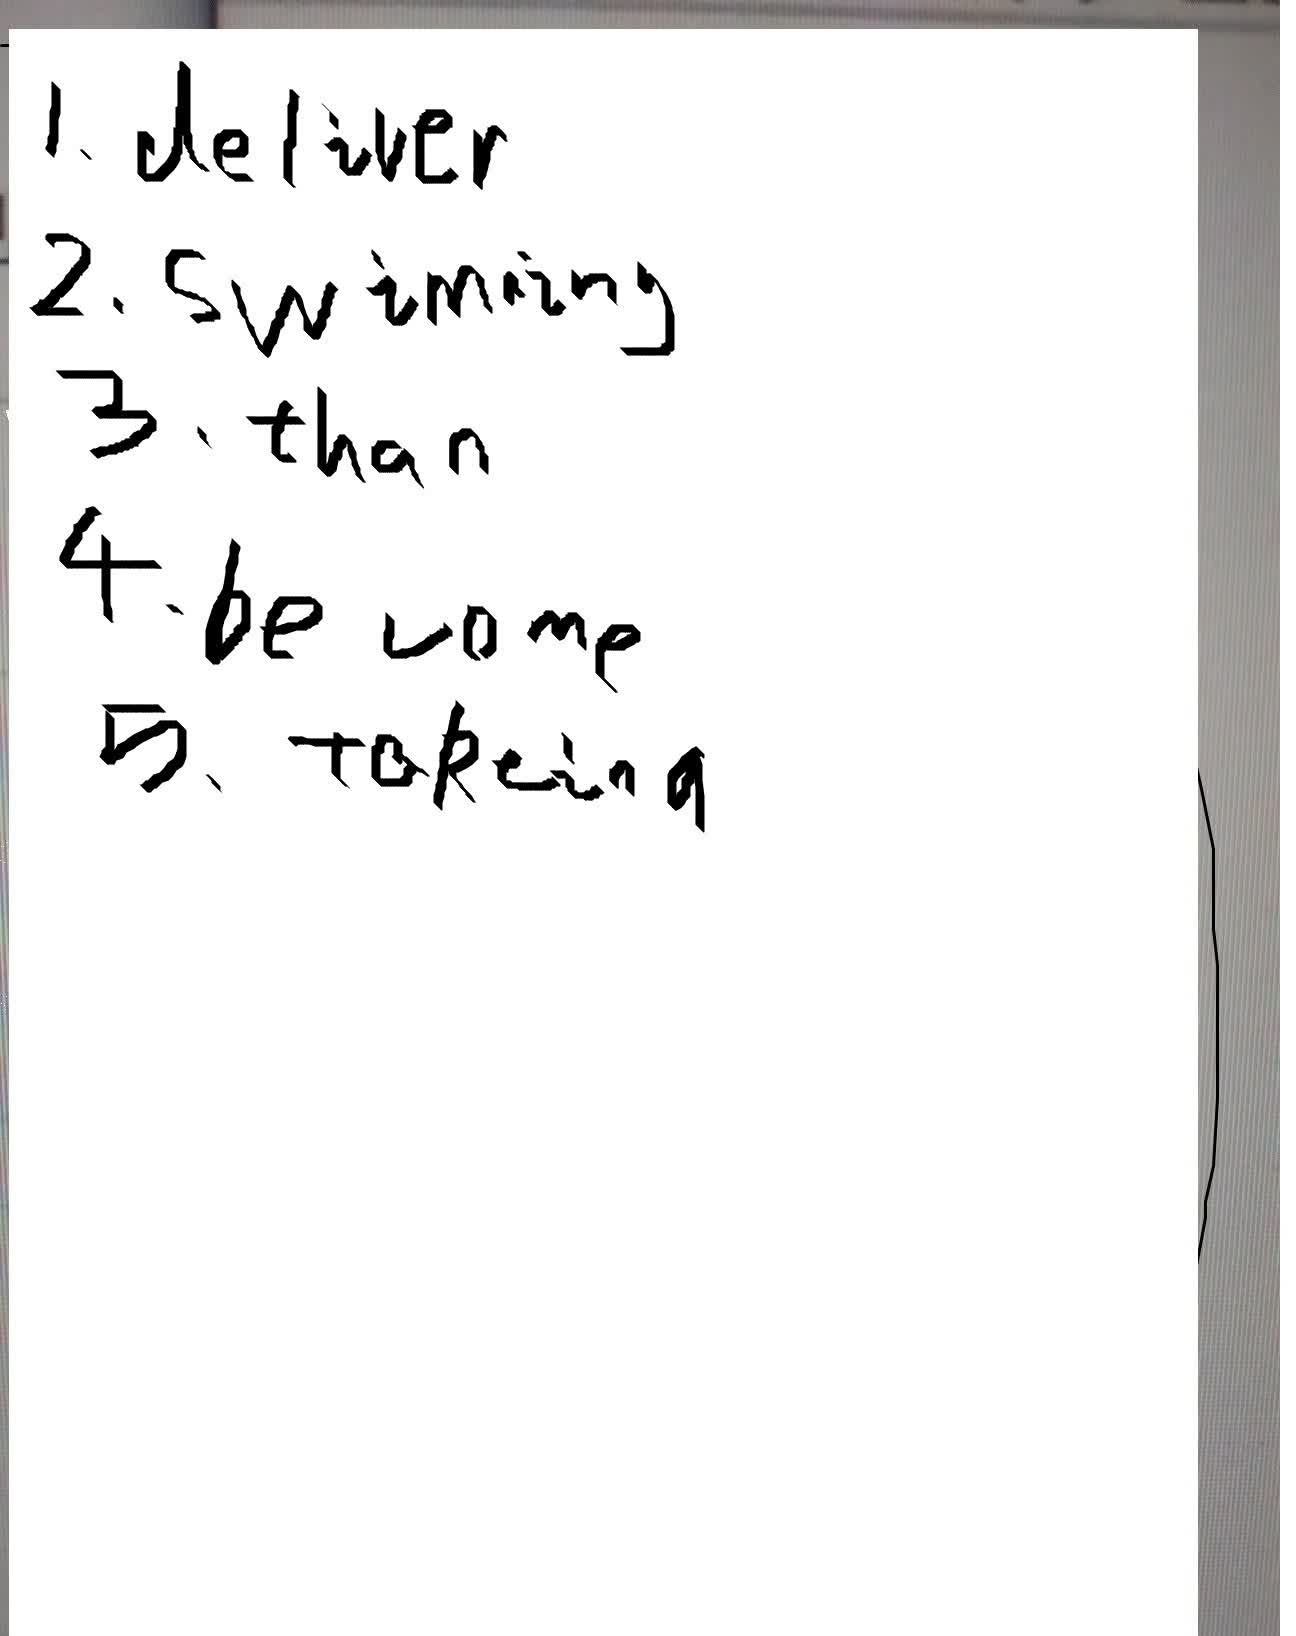 1. deliver
2. swimiing
3. than
4. become
5. takeing